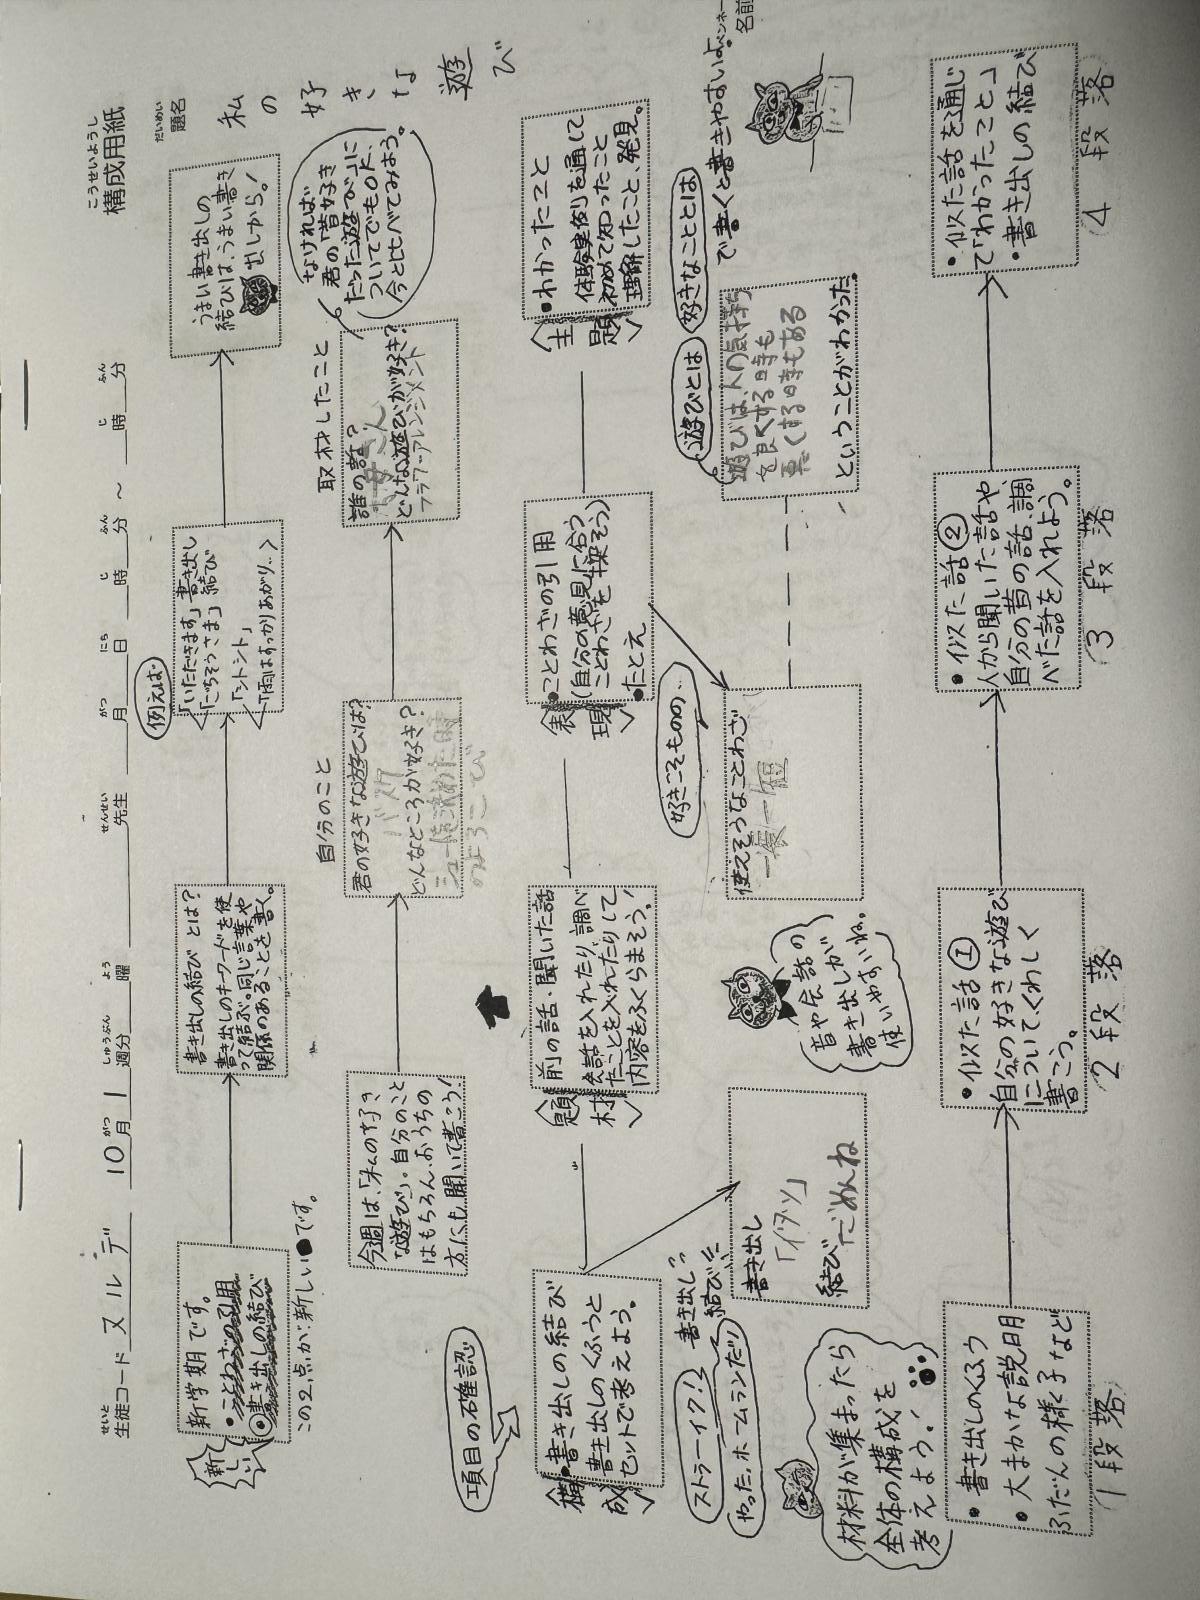 構成用紙
こうせいようし
生徒コード ヌルデ 10月1週分 曜 先生 月 日 時 分 ～ 時 分
せいと がつ しゅうぶん よう せんせい がつ にち じ ふん じ ふん
題名
だいめい
私の好きな遊び
名前
ペンネーム
新しい
新学期です。
・ことわざの引用
◎書き出しの結び
この2点が新しい●です。
書き出しの結びとは？
書き出しのキーワードを使
って結ぶ。同じ言葉や
関係のあることを書く。
例えば・
「いただきます」書き出し
「ごちそうさま」結び
「トントントン」
「雨はすっかりあがり‥」
うまい書き出しの
結びは、うまい書き
出しから！
今週は、「私の好き
な遊び」。自分のこと
はもちろん、おうちの
方にも聞いて書こう！
自分のこと
君の好きな遊びは？
バスケ
どんなところが好き？
シュートを決めた時
のよろこび
取材したこと
誰の話？
お母さん
どんな遊びが好き？
フラワーアレンジメント
なければ
君の「昔好き
だった遊び」に
ついてでもOK、
今と比べてみよう。
項目の確認
〈構成〉
・書き出しの結び
書き出しのくふうと
セットで考えよう。
〈題材〉
前の話・聞いた話
会話を入れたり、調べ
たことを入れたりして
内容をふくらまそう！
〈表現〉
・ことわざの引用
(自分の意見に合う
ことわざを探そう)
・たとえ
〈主題〉
・わかったこと
体験実例を通して
初めて知ったこと
理解したこと、発見。
ストラーイク！
やった、ホームランだ！
書き出し？
結び！！
書き出し
結び だめんね
昔や会話の
書き出しが
使いやすいね。
好きこそものの‥
使えそうなことわざ
一長一短
遊びとは
好きなこととは
で書くと書きやすいよ。
遊びは、人の気持ち
を良くする時も
悪くする時もある
ということがわかった。
材料が集まったら
全体の構成を
考えよう！
・書き出しのくふう
・大まかな説明
ふだんの様子など
1段落
・似た話①
自分の好きな遊び
について、くわしく
書こう。
2段落
・似た話②
人から聞いた話や
自分の昔の話、調
べた話を入れよう。
3段落
・似た話を通じ
て「わかったこと」
・書き出しの結び
4段落